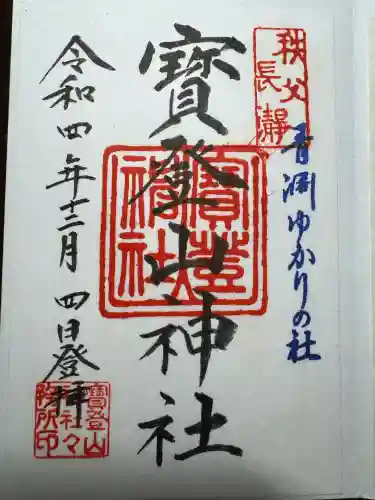 秩父
長瀞
青淵ゆかりの社
寳登山神社
寳登
山
神社
令和四年十二月四日登拝
寳登山
神社々
務所印